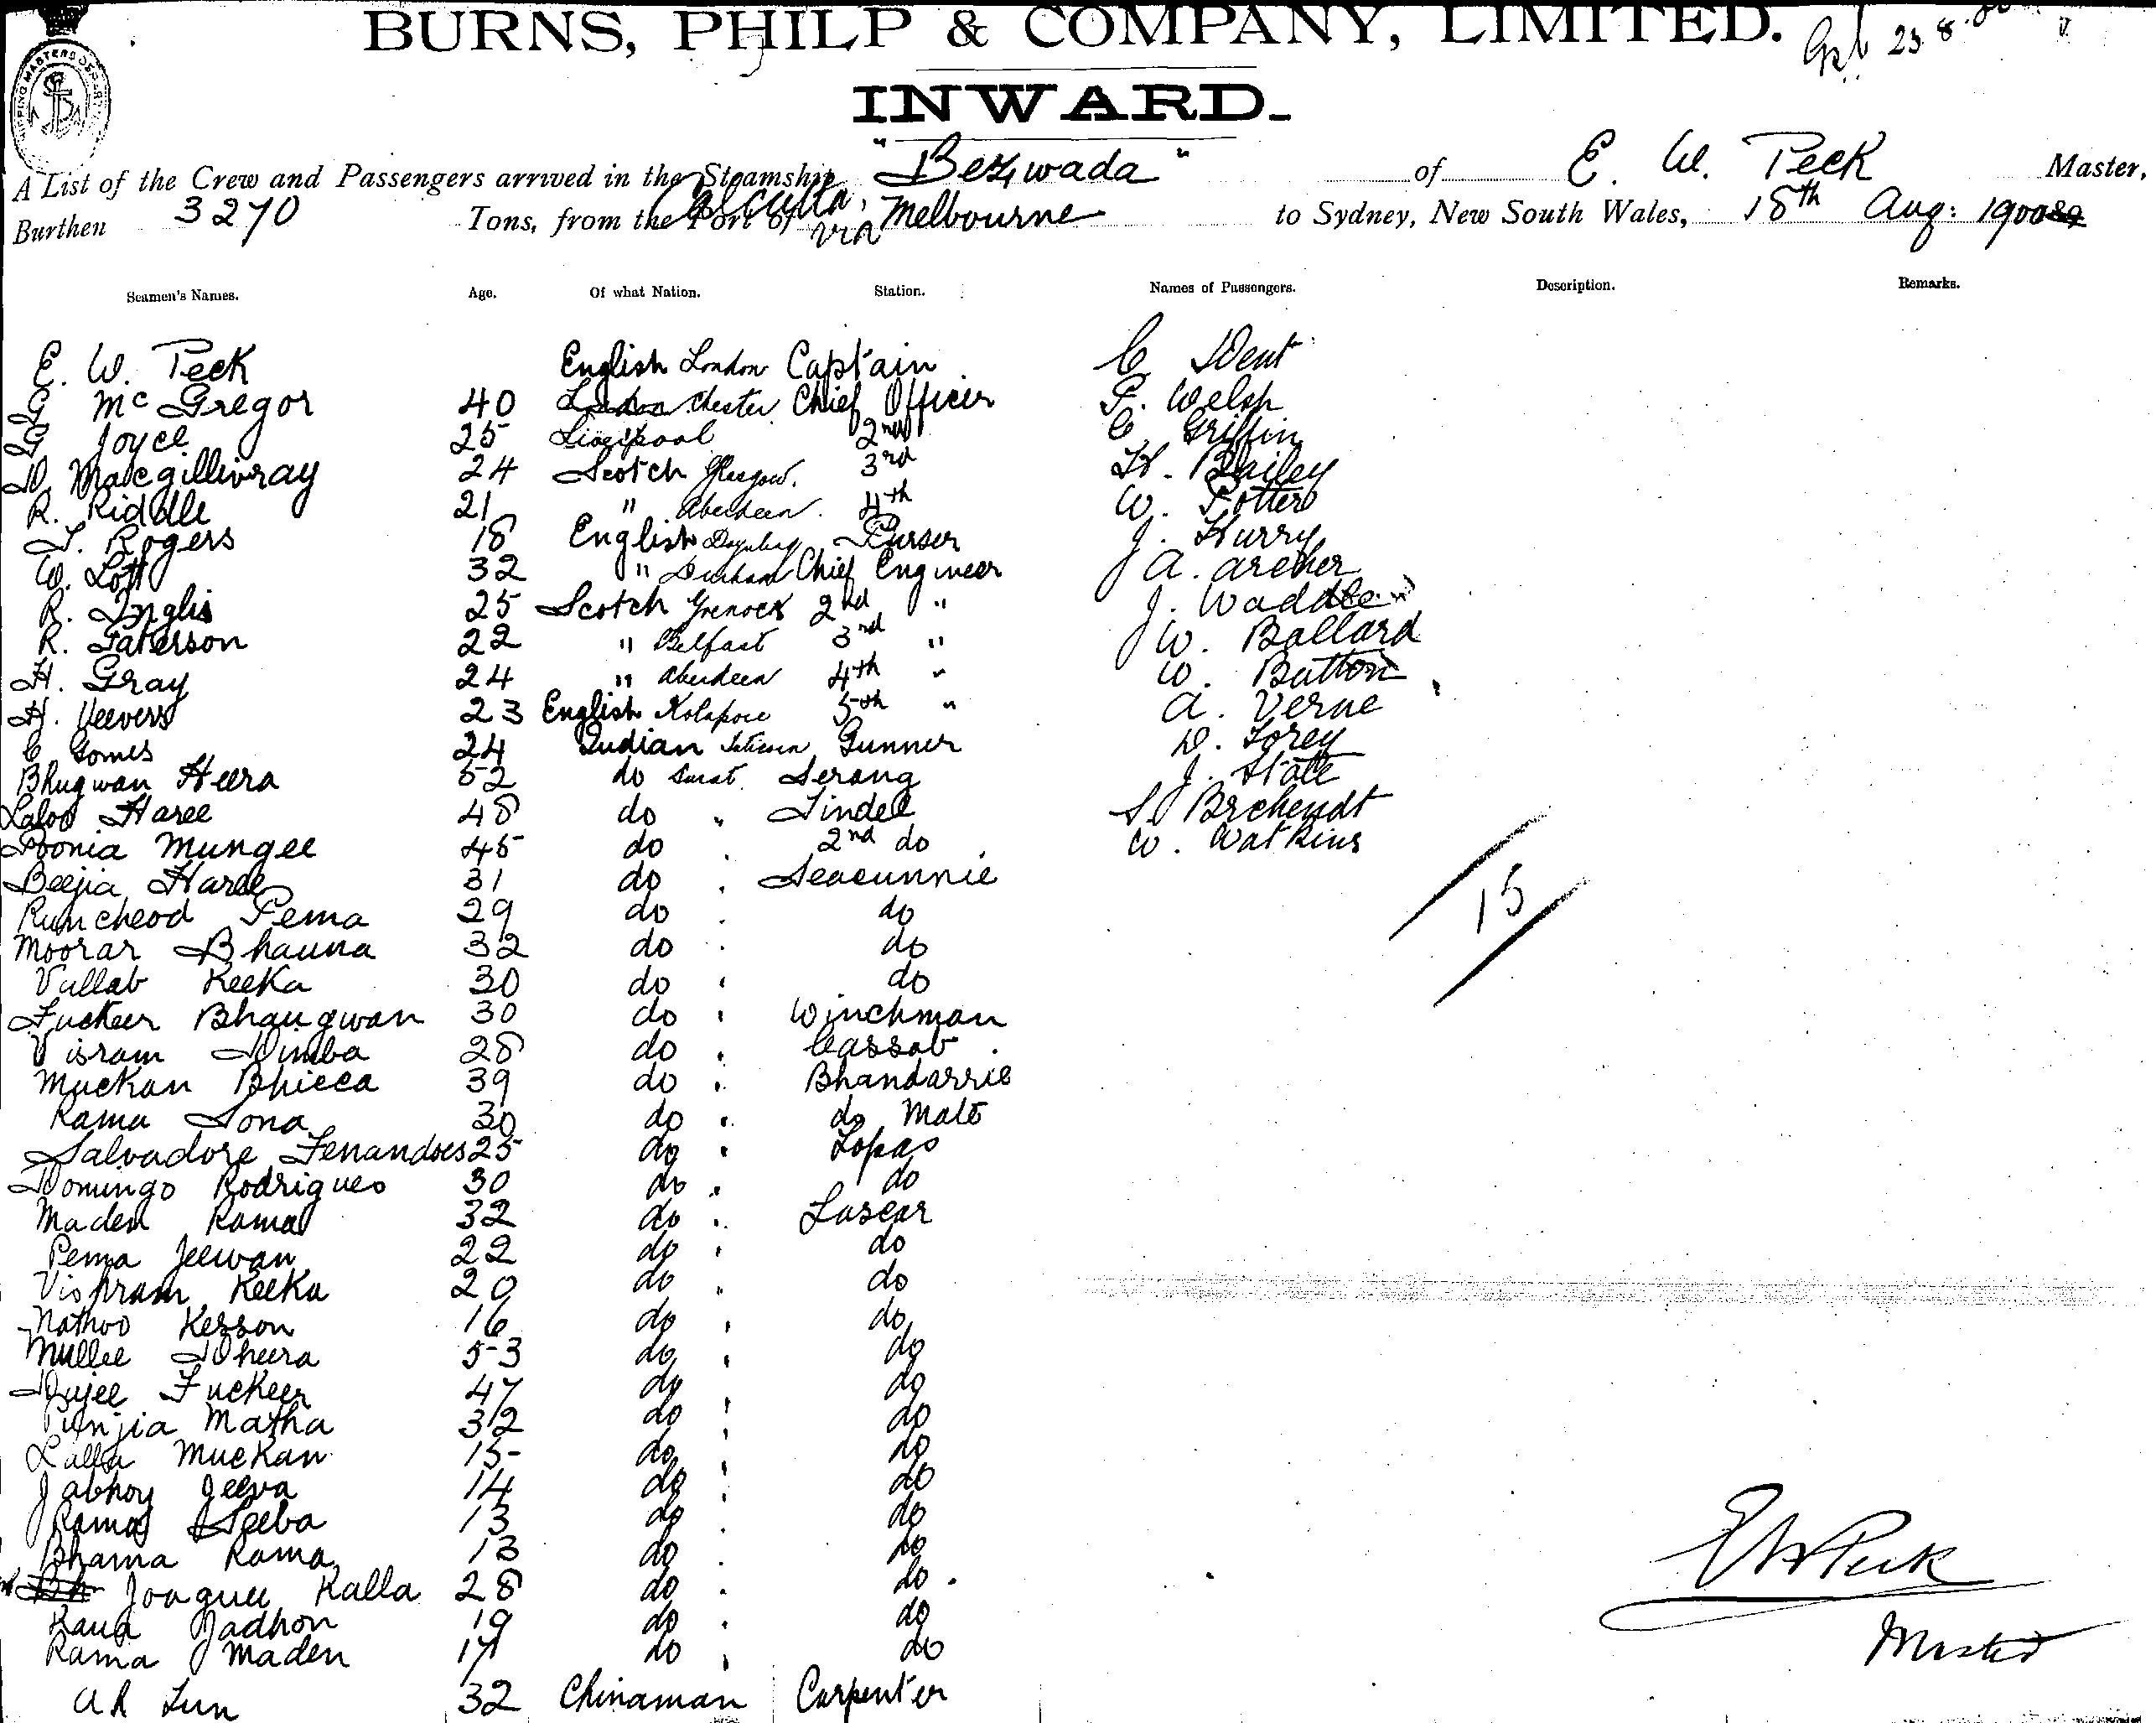 BURNS, PHILP & COMPANY, LIMITED.
23.8.00
INWARD.
A List of the Crew and Passengers arrived in the Steamship "Bezwada" of E. W. Peck Master,
Burthen 3270 Tons, from the Port of Calcutta, via Melbourne to Sydney, New South Wales, 18th Aug: 1900
Seamen's Names. Age. Of what Nation. Station. Names of Passengers. Description. Remarks.
E. W. Peck English London Captain C Dent
G McGregor 40 London Chester Chief Officer F. Welsh
G Joyce 25 Liverpool 2nd C. Griffin
D. Macgillivray 24 Scotch Glasgow. 3rd H. Bailey
R. Riddle 21 " Aberdeen. 4th W. Potter
S. Rogers 18 English Purser J. Hurry
W. Lott 32 " Durham Chief Engineer A. Archer
R. Inglis 25 Scotch Grenock 2nd " J. Waddle
R. Paterson 22 " Belfast 3rd " W. Ballard
H. Gray 24 " Aberdeen 4th " W. Button
H. Veevers 23 English Kolapore 5th " A. Verne
C Gomes 24 Indian Gunner D. Forey
Bhugwan Heera 52 do Surat Serang J. State
Laloo Haree 48 do " Tindel S Brchendt
Poonia Mungee 45 do 2nd do W. Watkins
Beejia Haree 31 do Seacunnie
Runcheod Pema 29 do do 15
Moorar Bhauna 32 do do
Vullab Keeka 30 do do
Fuckeer Bhaugwan 30 do Winchman
Visram Dimba 28 do Cassab
Muckan Bhicca 39 do Bhandarrie
Rama Sona 30 do do Mate
Salvadore Fenandoes 25 do Topas
Domingo Rodrigues 30 do do
Maden Rama 32 do Lascar
Pema Jeewan 22 do do
Vishram Keeka 20 do do
Nathoo Kesson 16 do do
Mullee Dheera 53 do do
Dujee Fuckeer 47 do do
Punjia Matha 32 do do
Lalla Muckan 15 do do
Jabhoy Jeeva 14 do do
Rama Seeba 13 do do
Bhama Rama 13 do do
Joaquee Kalla 28 do do
Rana Jadhon 19 do do
Rama Maden 17 do do
Ah Lun 32 Chinaman Carpenter
E W Peck
Master